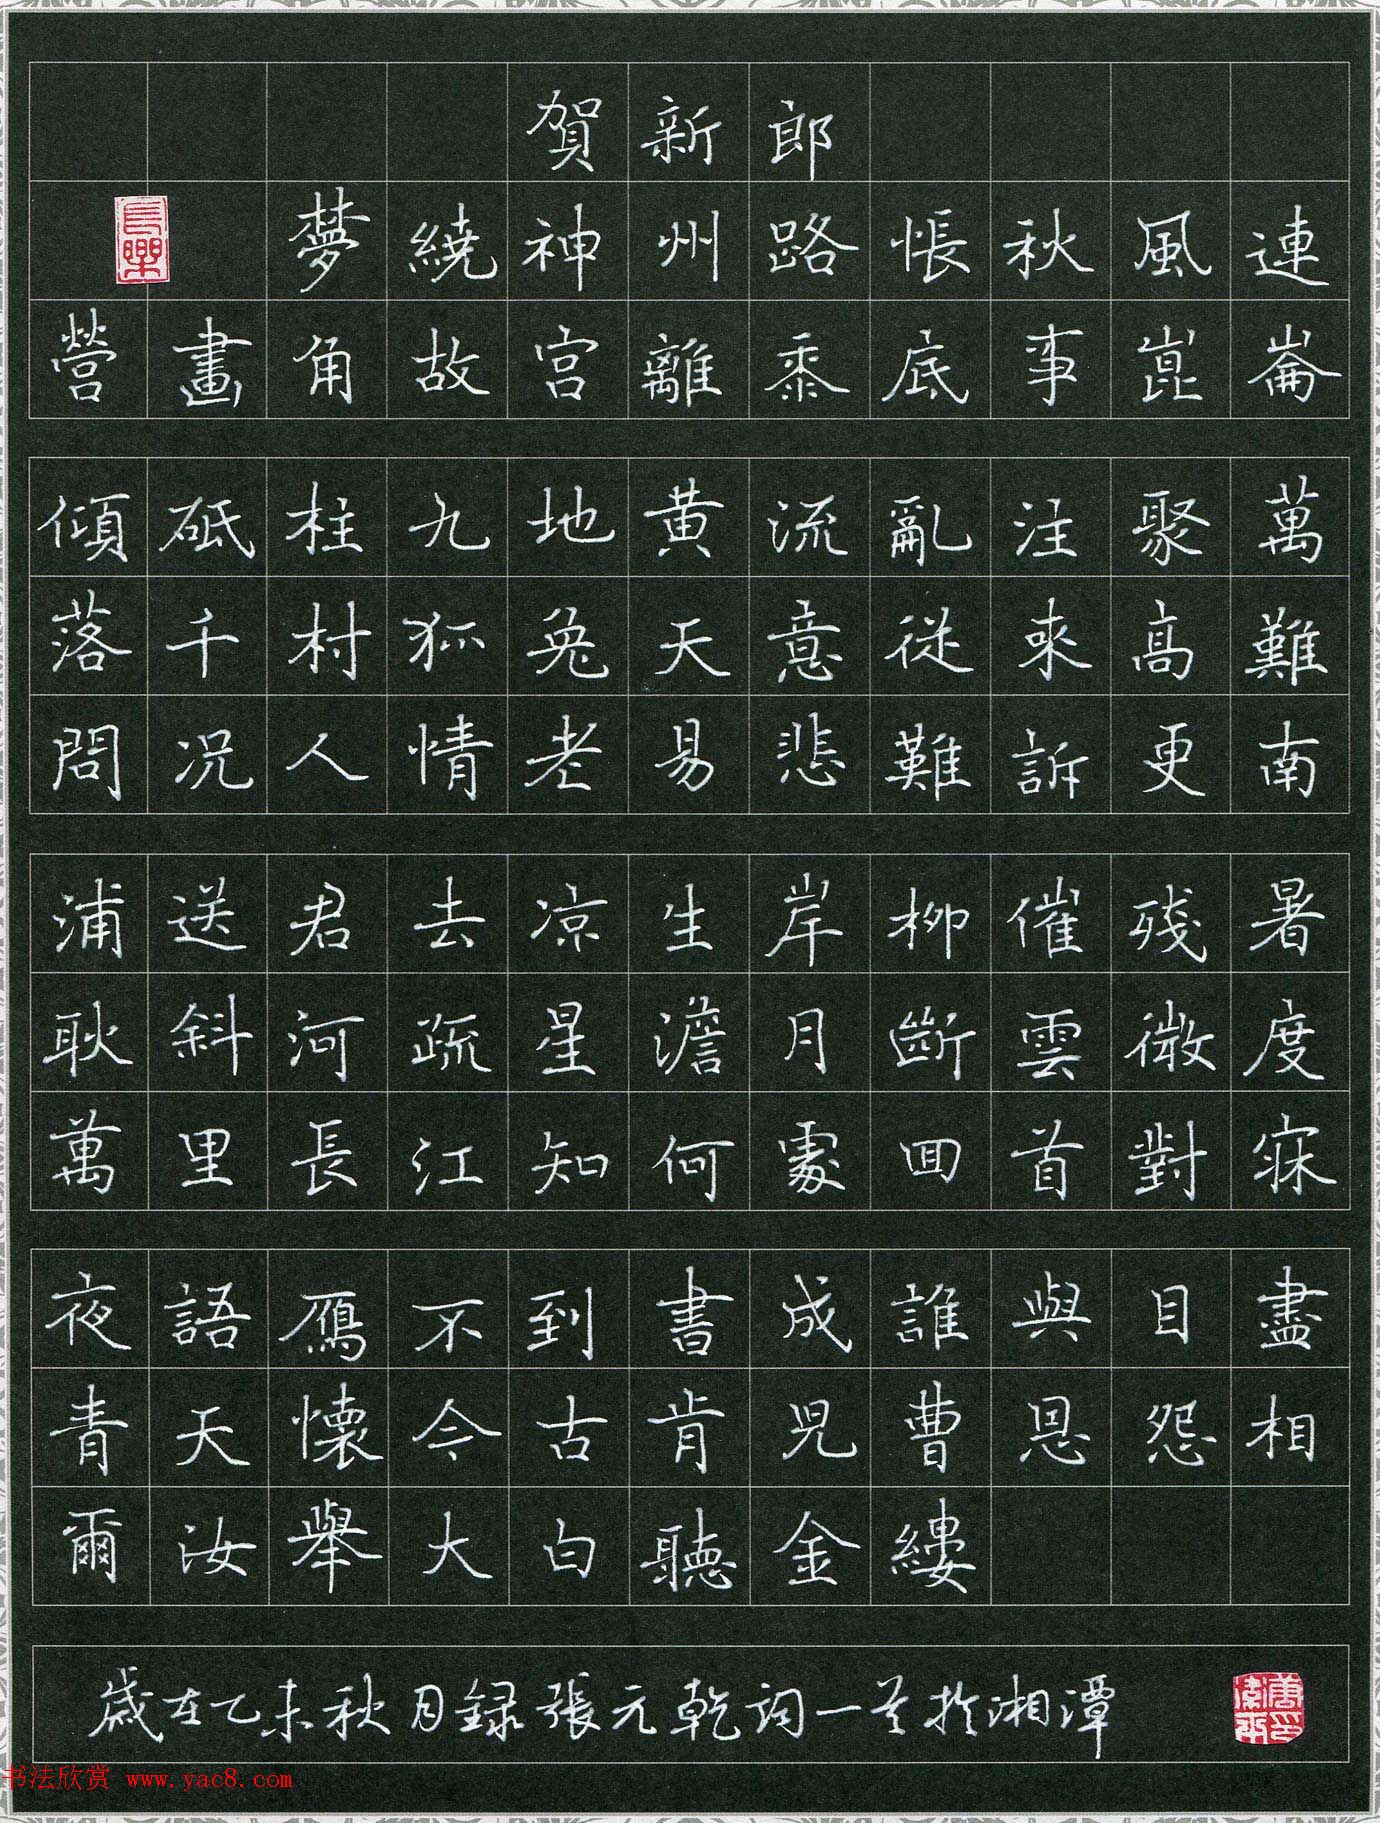 賀新郎
夢繞神州路悵秋風連
營畫角故宮離黍底事崑崙
傾砥柱九地黄流亂注聚萬
落千村狐兔天意從來高難
問况人情老易悲難訴更南
浦送君去凉生岸柳催殘暑
耿斜河疏星澹月斷雲微度
萬里長江知何處回首對床
夜語雁不到書成誰與目盡
青天懷今古肯兒曹恩怨相
爾汝舉大白聽金縷
歲在乙未秋月録張元乾詞一首於湘潭
书法欣赏 www.yac8.com